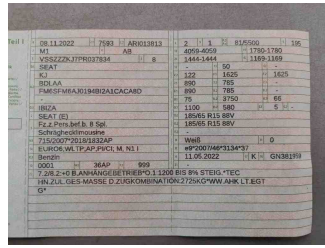 Teil I
08.11.2022 7593 ARI013813 2 1 81/5500 195
M1 AB 4059-4059 1780-1780
VSSZZZKJ7PR037834 8 1444-1444 1169-1169
SEAT - 50 -
KJ 122 1625 1625
BDLAA 890 785 -
FM6SFM6AJ0194BI2A1CACA8D 890 785 -
75 3750 66
IBIZA 1100 580 5 -
SEAT (E) 185/65 R15 88V
Fz.z.Pers.bef.b. 8 Spl. 185/65 R15 88V
Schräghecklimousine
715/2007*2018/1832AP Weiß 0
EURO6,WLTP;AP,PI/CI, M, N1 I e9*2007/46*3134*37
Benzin 11.05.2022 K GN381959
0001 36AP 999
7.2/8.2:+0 B.ANHÄNGEBETRIEB*O.1 1200 BIS 8% STEIG.*TEC
HN.ZUL.GES-MASSE D.ZUGKOMBINATION:2725KG*WW.AHK LT.EGT
G*